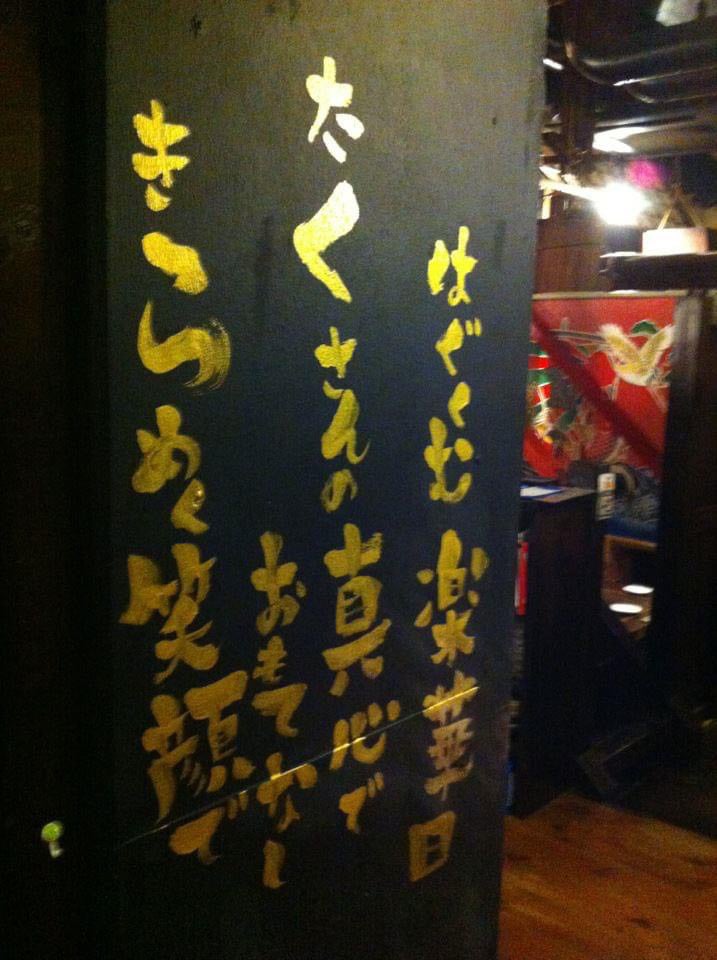 はぐくむ楽華日
たくさんの真心で
おもてなし
きらめく笑顔で